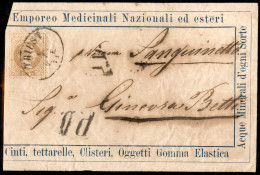 Emporeo Medicinali Nazionali ed esteri
Sanguinetto
Sig.
Ginevra Betti
PD
Acque Minerali d'ogni Sorte
Cinti, tettarelle, Clisteri, Oggetti Gomma Elastica